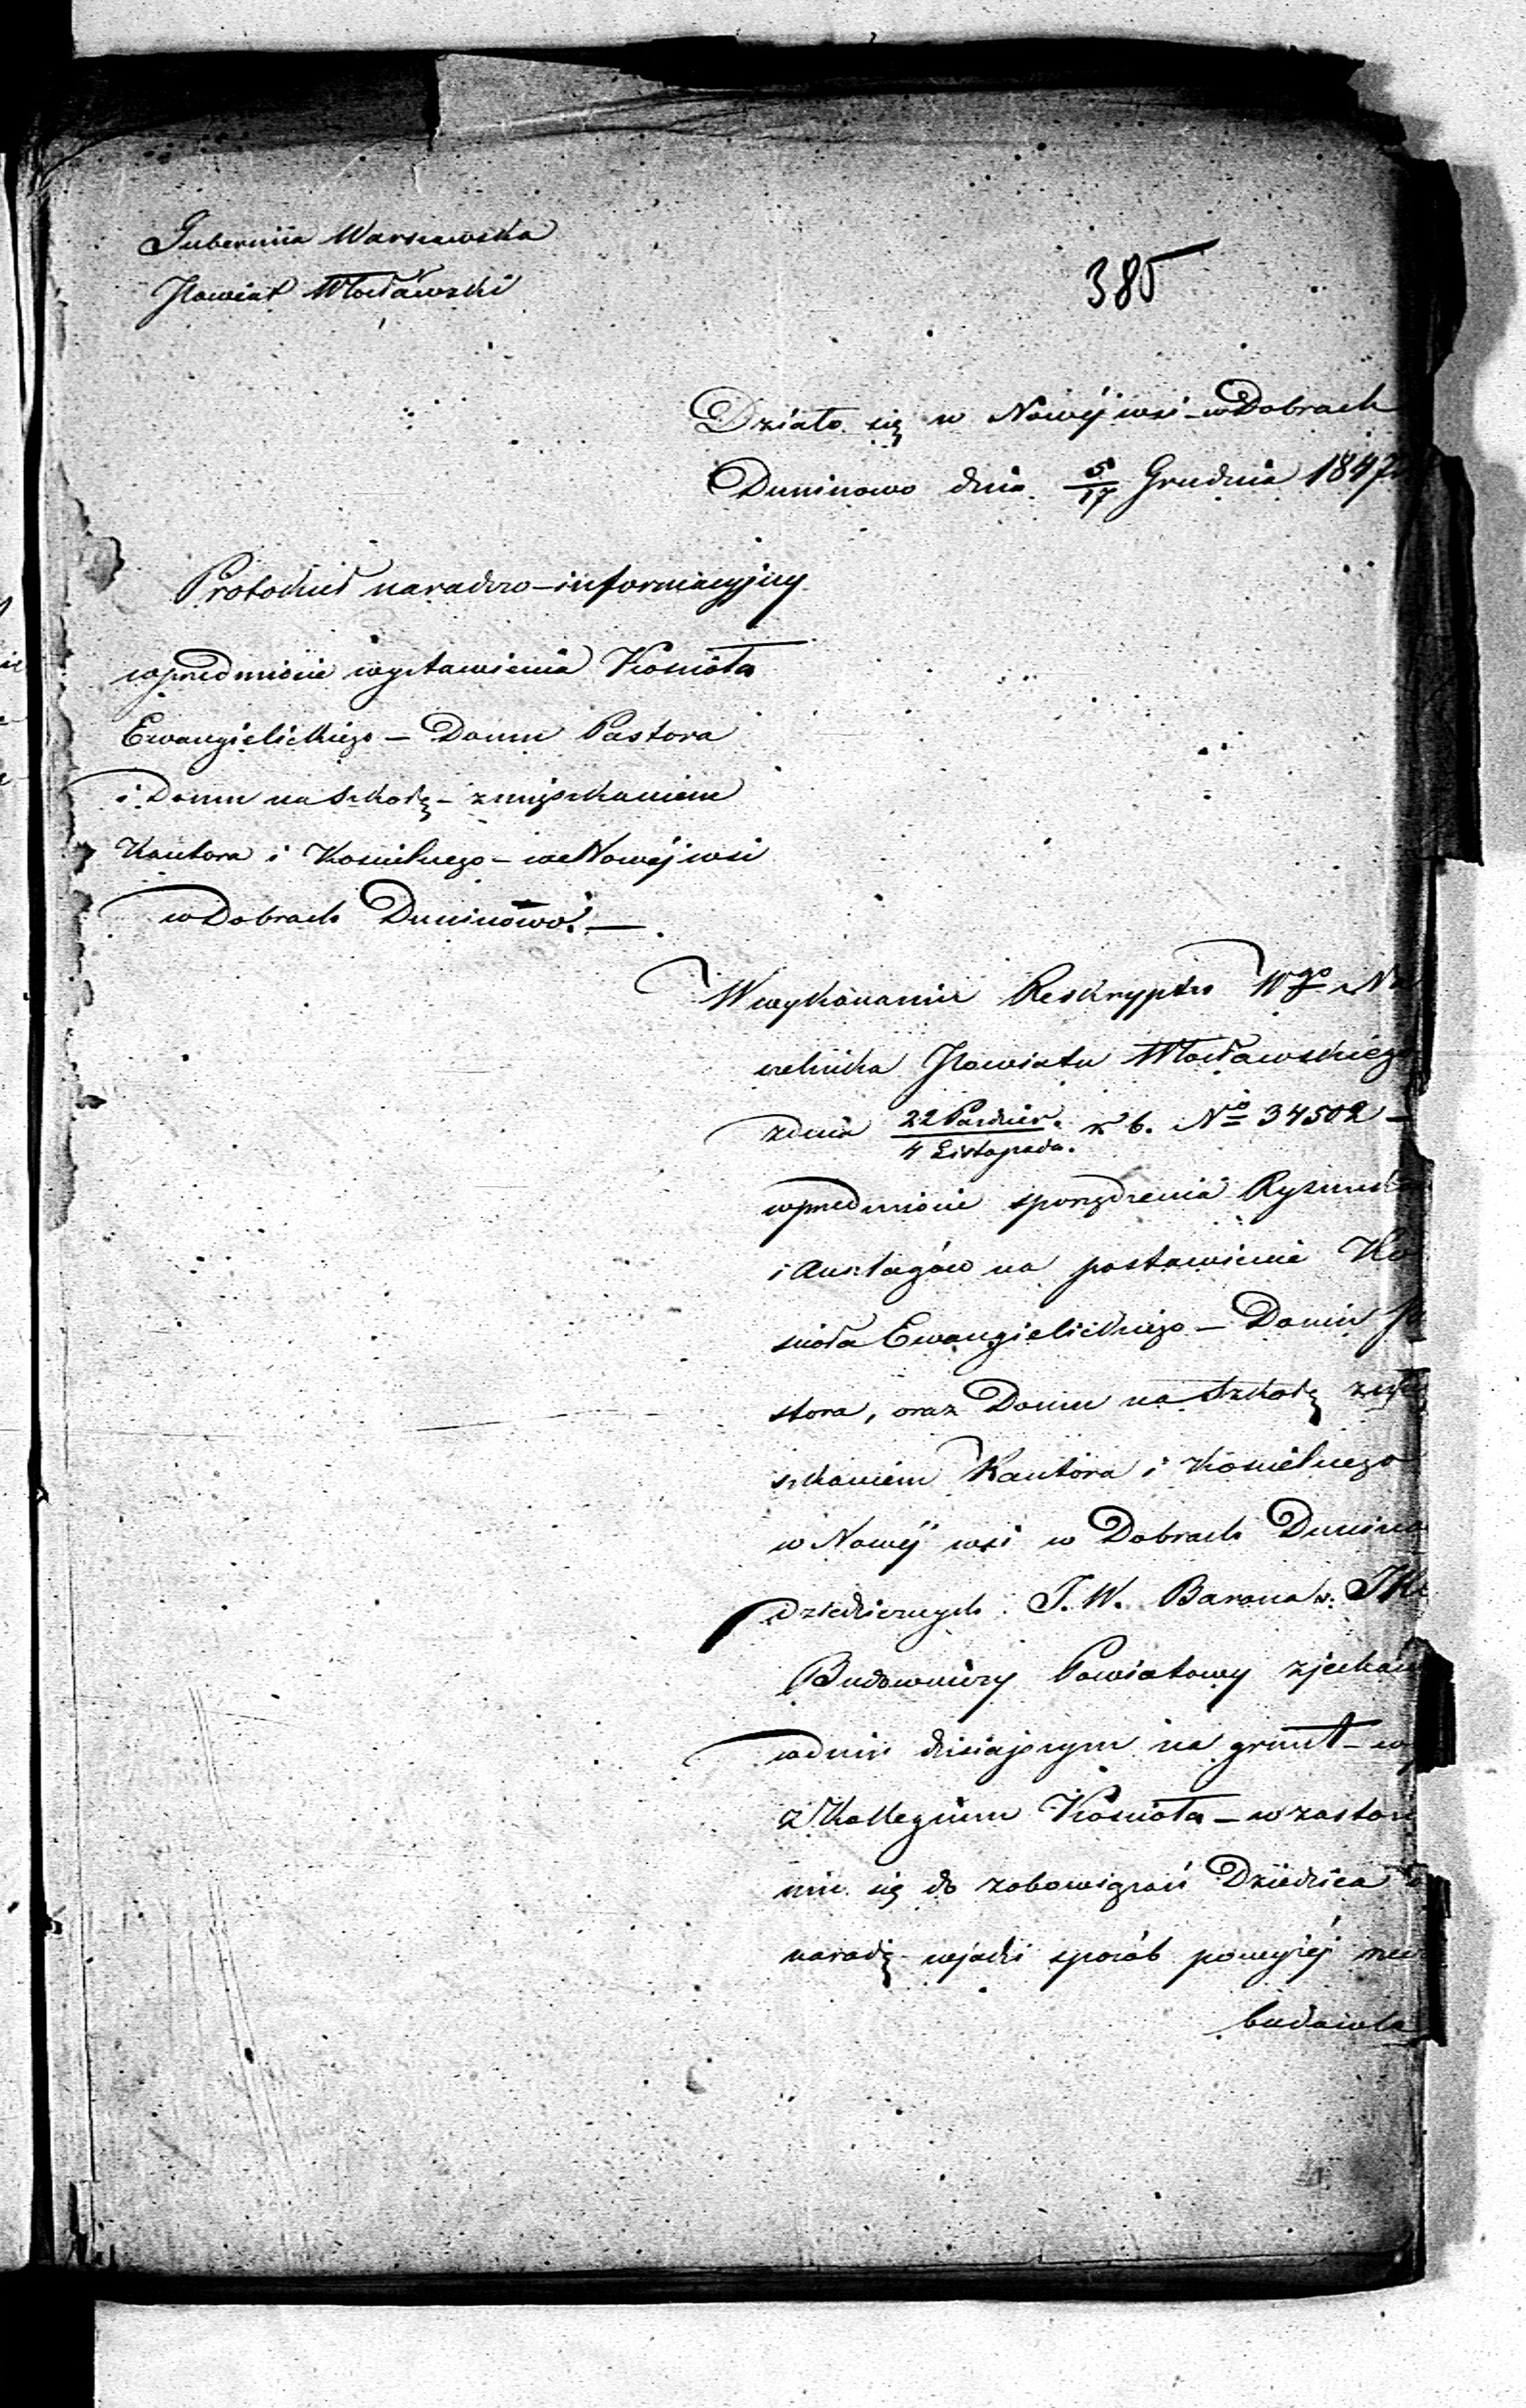 Gubernia Warszawska
Powiat Włocławski
385
Działo się w Nowéj wsi - w Dobrach
Duninowo dnia 5/17 Grudnia 1847
Protokuł naradczo-informacyjny
w przedmiocie wystawienia Kościoła
Ewangielickiego - Domu Pastora
i Domu na szkołę - z mięszkaniem
Kantora i Kościelnego - we Nowéj wsi
w Dobrach Duninowo. -
W wykonaniu Reskryptu Wgo Na
czelnika Powiatu Włocławskiego
z dnia 22 Paździer./4 Listopada. r b. No 34502 -
w przedmiocie sporządzenia Rysunków
i Anszlagów na postawienie Ko
ścioła Ewangielickiego - Domu Pa
stora, oraz Domu na szkołę z mię
szkaniem Kantora i Kościelnego
w Nowéj wsi w Dobrach Dunino
dziedzicznych J. W. Barona
Budowniczy Powiatowy zjechaw
w dniu dzisiajszym na grunt - w
z Kollegium Kościoła - w zastoso
niu się do zobowiązań Dziedzica
naradę w jaki sposób powyżéj rze
budowla